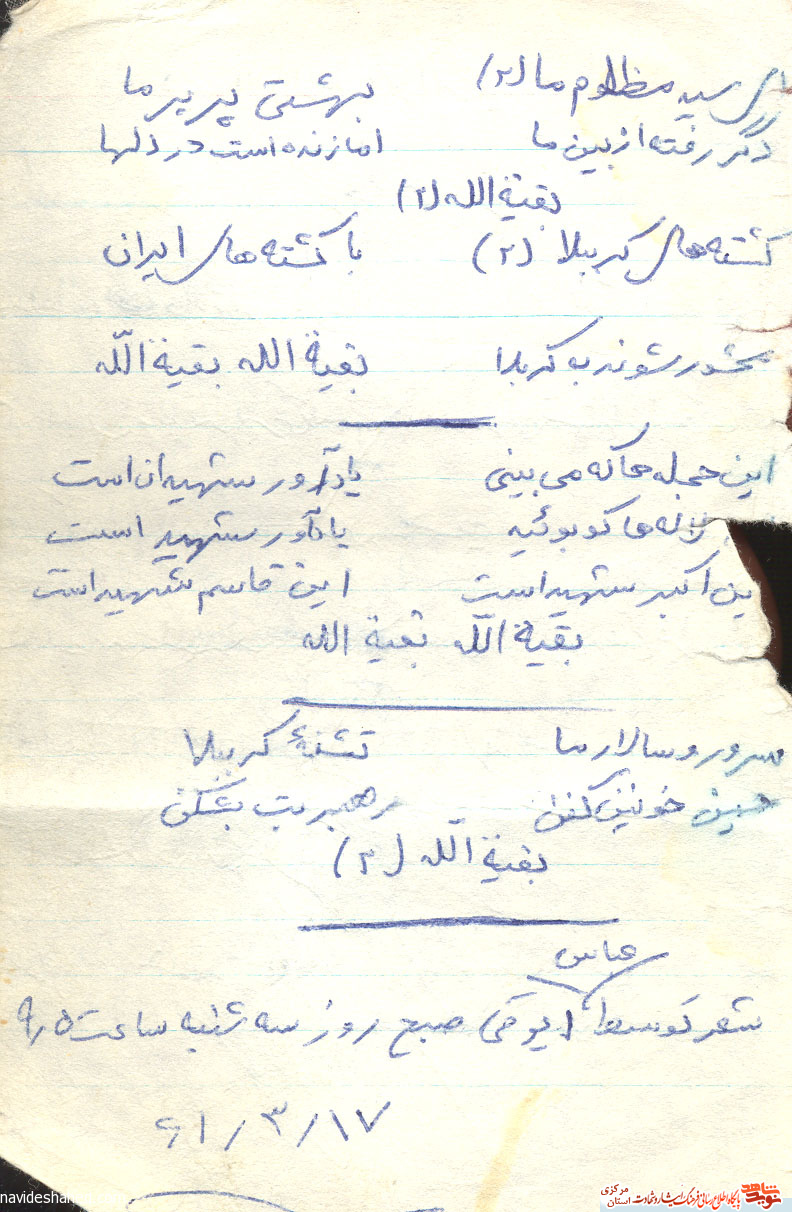 سید مظلوم ما (۲) بهشتی پرپر ما
دگر رفته از بین ما اما زنده است در دلها
بقیة الله (۲)
کشته‌های کربلا (۲) با کشته‌های ایران
محشور شوند به کربلا بقیة الله بقیة اللّه
این حجله ها که می بینی یادآور شهیدان است
لاله ها کو بوئیه یادآور شهید است
ین اکبر شهید است این قاسم شهید است
بقیة اللّه بقیة الله
سرور و سالار ما تشنهٔ کربلا
حسین خونین کفن رهبر بت شکن
بقیة اللّه (۲)
عباس
شعر توسط ایوقی صبح روز سه شنبه ساعت ۹٫۵
۶۱/۳/۱۷
navidesha
نوید شاهد پایگاه اطلاع رسانی فرهنگ ایثار و شهادت استان مرکزی